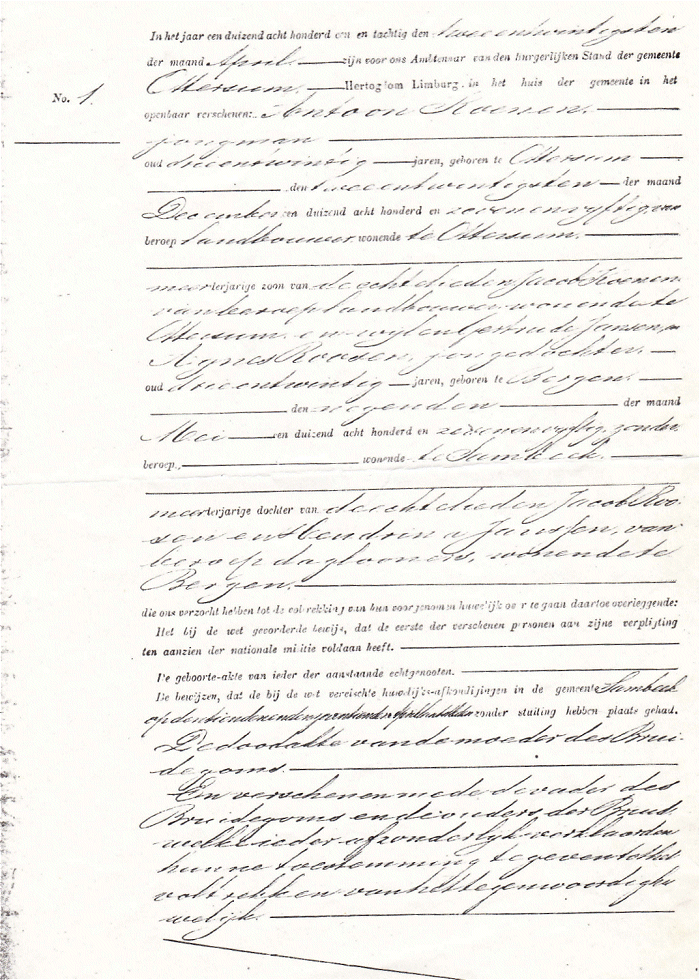 In het jaar een duizend acht honderd een en tachtig den tweeentwintigsten
der maand April. zijn voor ons Ambtenaar van den burgerlijken Stand der gemeente
Ottersum. Hertogdom Limburg. in het huis der gemeente in het
No. 1.
openbaar verschenen: Antoon Koenen.
jongman
oud drieentwintig jaren, geboren te Ottersum
den tweeentwintigsten der maand
December een duizend acht honderd en zevenenvijftig van
beroep landbouwer wonende te Ottersum.
meerderjarige zoon van de echtelieden Jacob Koenen
van beroep landbouwer wonende te
Ottersum en wijlen Gertrude Jansen, en
Agnes Roosen, jongedochter.
oud drieentwintig jaren, geboren te Bergen.
den negenden der maand
Mei een duizend acht honderd en zevenenvijftig, zonder
beroep, wonende te Sambeek.
meerderjarige dochter van de echtelieden Jacob Roo-
sen en Hendrina Janssen, van
beroep daglooners, wonende te
Bergen.
die ons verzocht hebben tot de voltrekking van hun voorgenomen huwelijk over te gaan daartoe overleggende:
Het bij de wet gevorderde bewijs, dat de eerste der verschenen personen aan zijne verpligting
ten aanzien der nationale militie voldaan heeft.
De geboorte-akte van ieder der aanstaande echtgenooten.
De bewijzen, dat de bij de wet vereischte huwelijks-afkondigingen in de gemeente Sambeek
op den tienden en den zeventienden April zonder stuiting hebben plaats gehad.
De doodakte van de moeder des Brui-
degoms.
En verschenen mede de vader des
Bruidegoms en de ouders der Bruid
welke ieder afzonderlijk verklaarden
hunne toestemming te geven tot het
voltrekken van het tegenwoordig hu-
welijk.